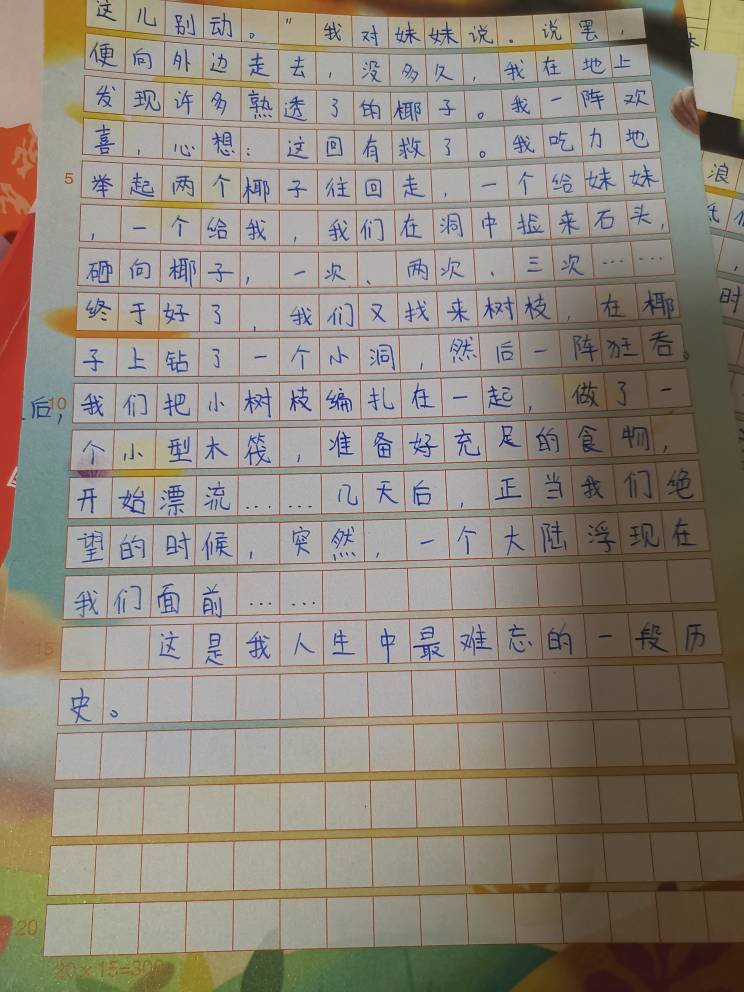 这儿别动。"我对妹妹说。说罢，
便向外边走去，没多久，我在地上
发现许多熟透了的椰子。我一阵欢
喜，心想：这回有救了。我吃力地
5 举起两个椰子往回走，一个给妹妹
，一个给我，我们在洞中捡来石头，
砸向椰子，一次、两次、三次……
终于好了，我们又找来树枝，在椰
子上钻了一个小洞，然后一阵狂吞。
后，10 我们把小树枝编扎在一起，做了一
个小型木筏，准备好充足的食物，
开始漂流……几天后，正当我们绝
望的时候，突然，一个大陆浮现在
我们面前……
15 这是我人生中最难忘的一段历
史。
20
20×15=300
浪
时